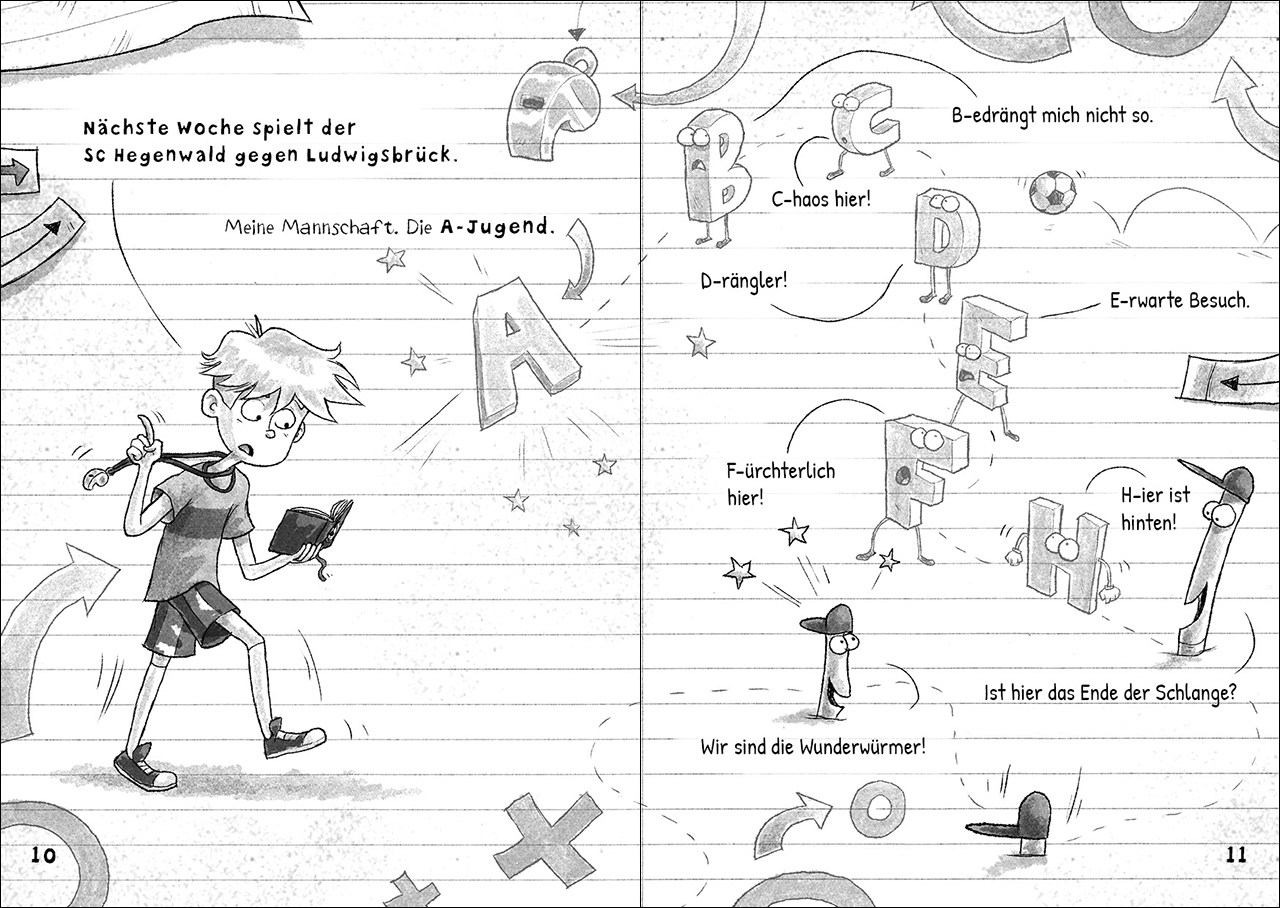 Nächste Woche spielt der
SC Hegenwald gegen Ludwigsbrück.
Meine Mannschaft. Die A-Jugend.
A
10
B
C
B-edrängt mich nicht so.
C-haos hier!
D
D-rängler!
E-rwarte Besuch.
E
F
F-ürchterlich
hier!
H-ier ist
hinten!
H
Ist hier das Ende der Schlange?
Wir sind die Wunderwürmer!
11